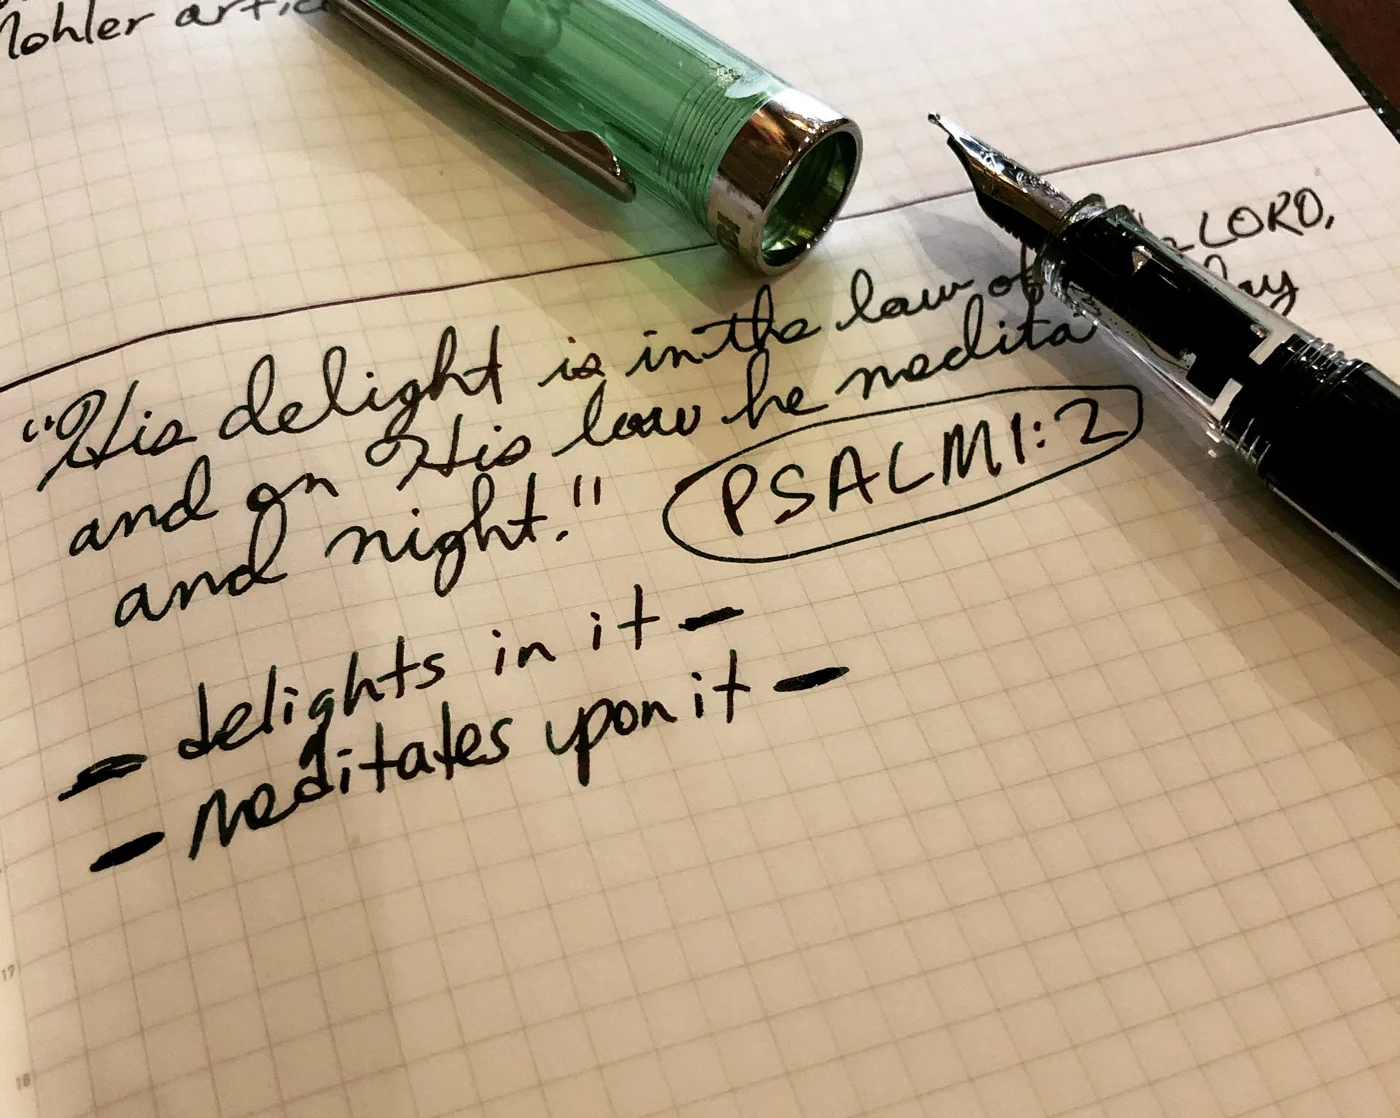 Mohler artic
"His delight is in the law of LORD,
and on His law he medita
and night."
PSALM 1:2
- delights in it -
- meditates upon it -
17
18